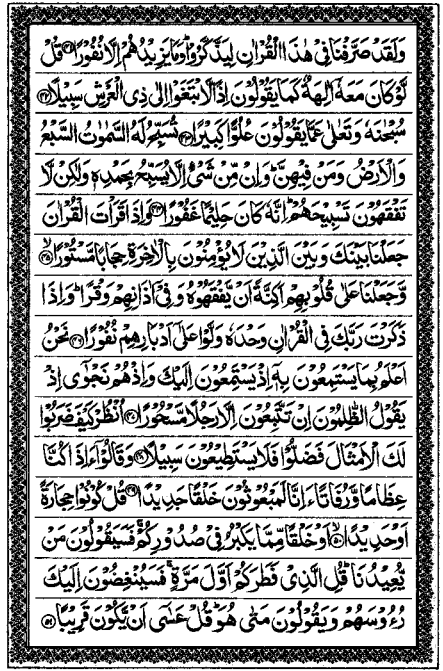 وَلَقَدْ صَرَّفْنَا فِيْ هٰذَا الْقُرْاٰنِ لِيَذَّكَّرُوْا ؕ وَمَا يَزِيْدُهُمْ اِلَّا نُفُوْرًا ﴿۴۱﴾ قُلْ
لَّوْ كَانَ مَعَهٗۤ اٰلِهَةٌ كَمَا يَقُوْلُوْنَ اِذًا لَّابْتَغَوْا اِلٰى ذِي الْعَرْشِ سَبِيْلًا ﴿۴۲﴾
سُبْحٰنَهٗ وَتَعٰلٰى عَمَّا يَقُوْلُوْنَ عُلُوًّا كَبِيْرًا ﴿۴۳﴾ تُسَبِّحُ لَهُ السَّمٰوٰتُ السَّبْعُ
وَالْاَرْضُ وَمَنْ فِيْهِنَّ ؕ وَاِنْ مِّنْ شَيْءٍ اِلَّا يُسَبِّحُ بِحَمْدِهٖ وَلٰكِنْ لَّا
تَفْقَهُوْنَ تَسْبِيْحَهُمْ ؕ اِنَّهٗ كَانَ حَلِيْمًا غَفُوْرًا ﴿۴۴﴾ وَاِذَا قَرَاْتَ الْقُرْاٰنَ
جَعَلْنَا بَيْنَكَ وَبَيْنَ الَّذِيْنَ لَا يُؤْمِنُوْنَ بِالْاٰخِرَةِ حِجَابًا مَّسْتُوْرًا ﴿۴۵﴾
وَّجَعَلْنَا عَلٰى قُلُوْبِهِمْ اَكِنَّةً اَنْ يَّفْقَهُوْهُ وَفِيْۤ اٰذَانِهِمْ وَقْرًا ؕ وَاِذَا
ذَكَرْتَ رَبَّكَ فِي الْقُرْاٰنِ وَحْدَهٗ وَلَّوْا عَلٰۤى اَدْبَارِهِمْ نُفُوْرًا ﴿۴۶﴾ نَحْنُ
اَعْلَمُ بِمَا يَسْتَمِعُوْنَ بِهٖۤ اِذْ يَسْتَمِعُوْنَ اِلَيْكَ وَاِذْ هُمْ نَجْوٰۤى اِذْ
يَقُوْلُ الظّٰلِمُوْنَ اِنْ تَتَّبِعُوْنَ اِلَّا رَجُلًا مَّسْحُوْرًا ﴿۴۷﴾ اُنْظُرْ كَيْفَ ضَرَبُوْا
لَكَ الْاَمْثَالَ فَضَلُّوْا فَلَا يَسْتَطِيْعُوْنَ سَبِيْلًا ﴿۴۸﴾ وَقَالُوْۤا ءَاِذَا كُنَّا
عِظَامًا وَّرُفَاتًا ءَاِنَّا لَمَبْعُوْثُوْنَ خَلْقًا جَدِيْدًا ﴿۴۹﴾ قُلْ كُوْنُوْا حِجَارَةً
اَوْ حَدِيْدًا ﴿۵۰﴾ اَوْ خَلْقًا مِّمَّا يَكْبُرُ فِيْ صُدُوْرِكُمْ ۚ فَسَيَقُوْلُوْنَ مَنْ
يُّعِيْدُنَا ؕ قُلِ الَّذِيْ فَطَرَكُمْ اَوَّلَ مَرَّةٍ ۚ فَسَيُنْغِضُوْنَ اِلَيْكَ
رُءُوْسَهُمْ وَيَقُوْلُوْنَ مَتٰى هُوَ ؕ قُلْ عَسٰۤى اَنْ يَّكُوْنَ قَرِيْبًا ﴿۵۱﴾